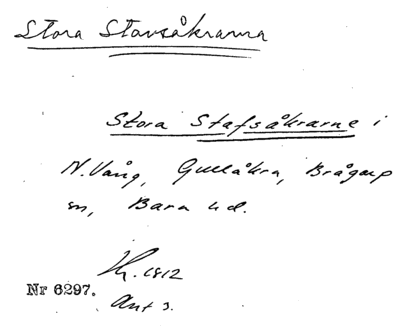 Stora Stavsåkrarna
Stora Stafsåkrarne i
N. Vång, Gullåkra, Brågarp
sn, Bara hd.
Nr 6297.
1812
Ant 3.